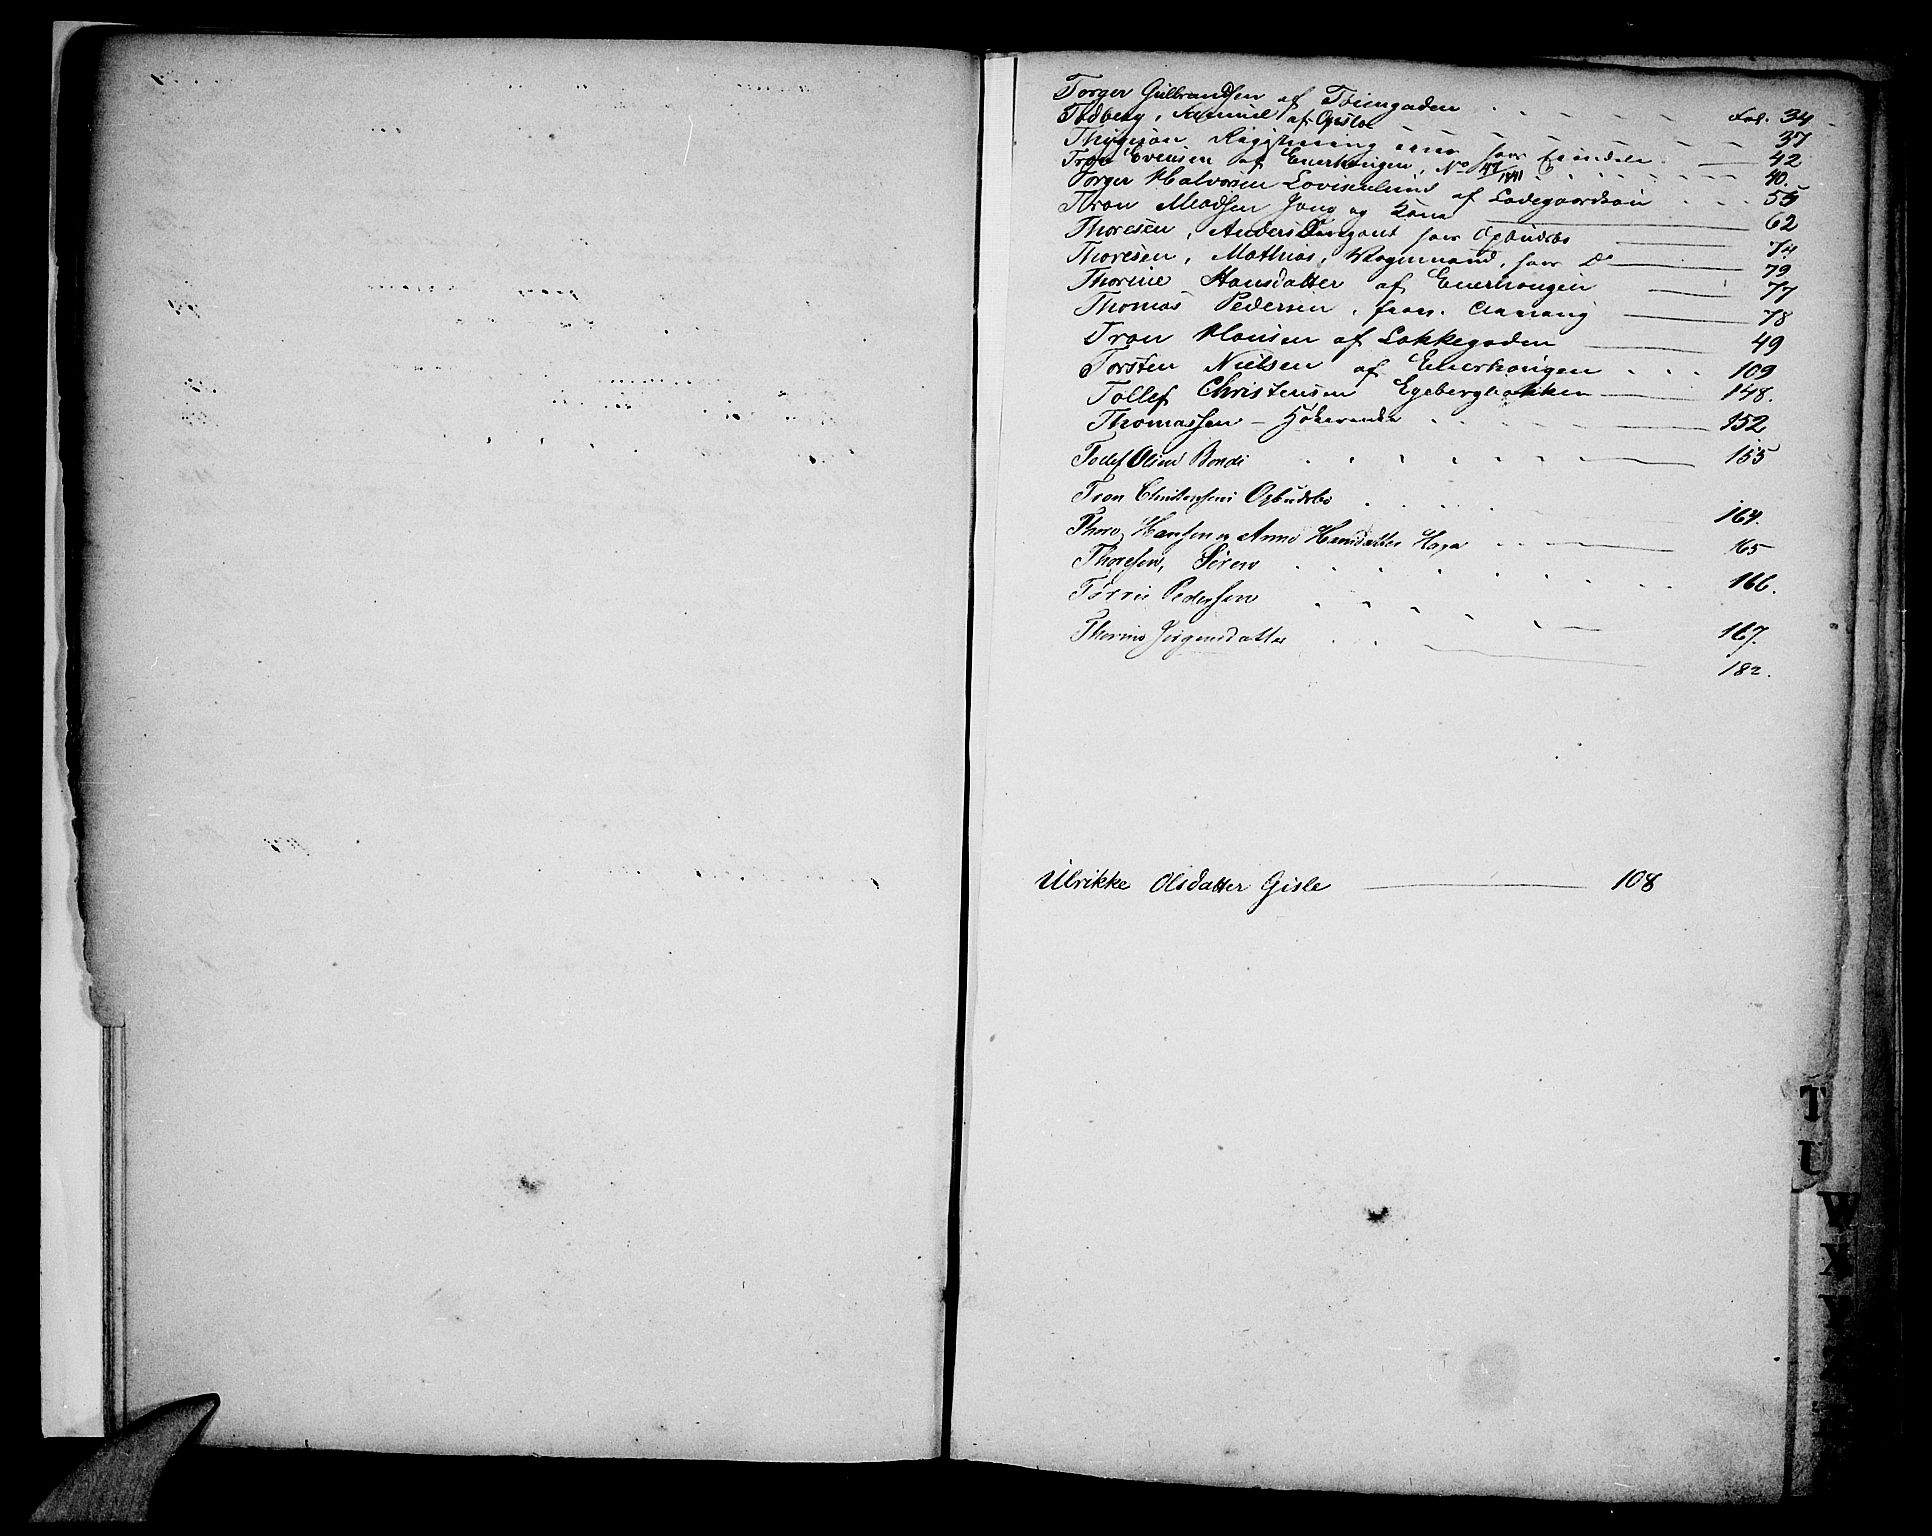 Torger Gulbrandsen af Tøiengaden Fol. 34
Todberg, Samuel af Opsloe 37
Thygeson 42
Tron Evensen af Enerhougen, No 47/1841 40.
Torger Halvorsen Lovisenlund af Ladegaardsøen 55
Tron Madsen Jong og Kone 62
Thoresen, Anders Sergeant 74
Thoresen, Mathias, Vognmand, D° 79
Thorine Hansdatter af Enerhougen 77
Thomas Pedersen 78
Tron Hansen af Løkkegaden 49
Torsten Nielsen af Enerhougen 109
Tollef Christensen Egebergbakken 148.
Thomassen — Høkerenke 152
Tolef Olsen Bondi 155
Tron Christensen Opbudsbo 164.
Thore Hansen og Anne Hansdatter Haga 165
Thoresen, Søren 166.
Tørris Pedersen 167.
Thorine Jørgensdatter 182.
Ulrikke Olsdatter Gisle 108
T
U
W
X
Y